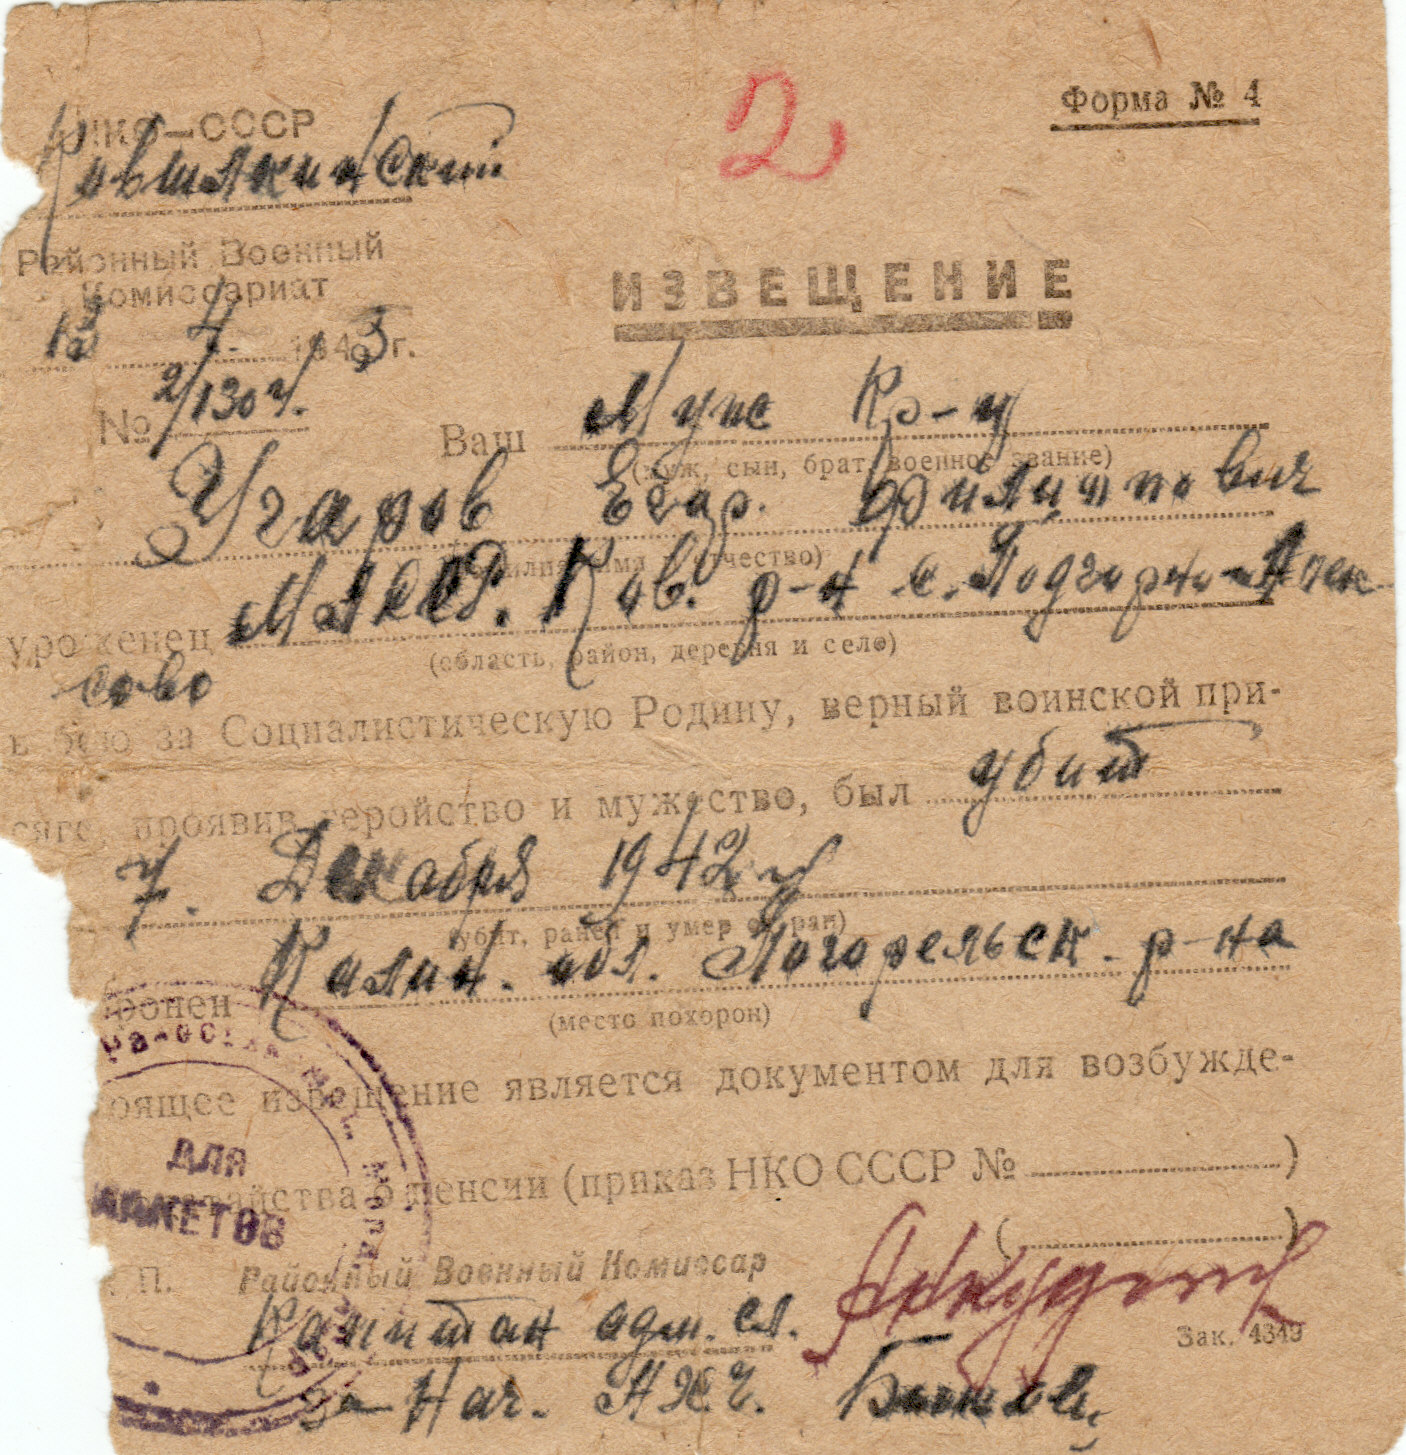 2
Форма № 4
НКО—СССР
Ковылкинский
Районный Военный
Комиссариат
13 4. 1943 г.
ИЗВЕЩЕНИЕ
№ 2/1304.
Ваш Муж Кр-ц
(муж, сын, брат, военное звание)
Угаров Егор. Филиппович
(фамилия, имя отчество)
уроженец МАССР. Ков. р-н с. Подгорно-Алек
(область, район, деревня и село)
сово
в бою за Социалистическую Родину, верный воинской при-
сяге, проявив геройство и мужество, был убит
7. Декабря 1942 г
(убит, ранен и умер от ран)
ронен Калин. обл. Погорельск. р-на
(место похорон)
оящее извещение является документом для возбужде-
ходатайства о пенсии (приказ НКО СССР № )
( )
ДЛЯ
ПАКЕТОВ
П. Районный Военный Комиссар
Капитан адм. сл.
Зак. 4349
за Нач. АХЧ.